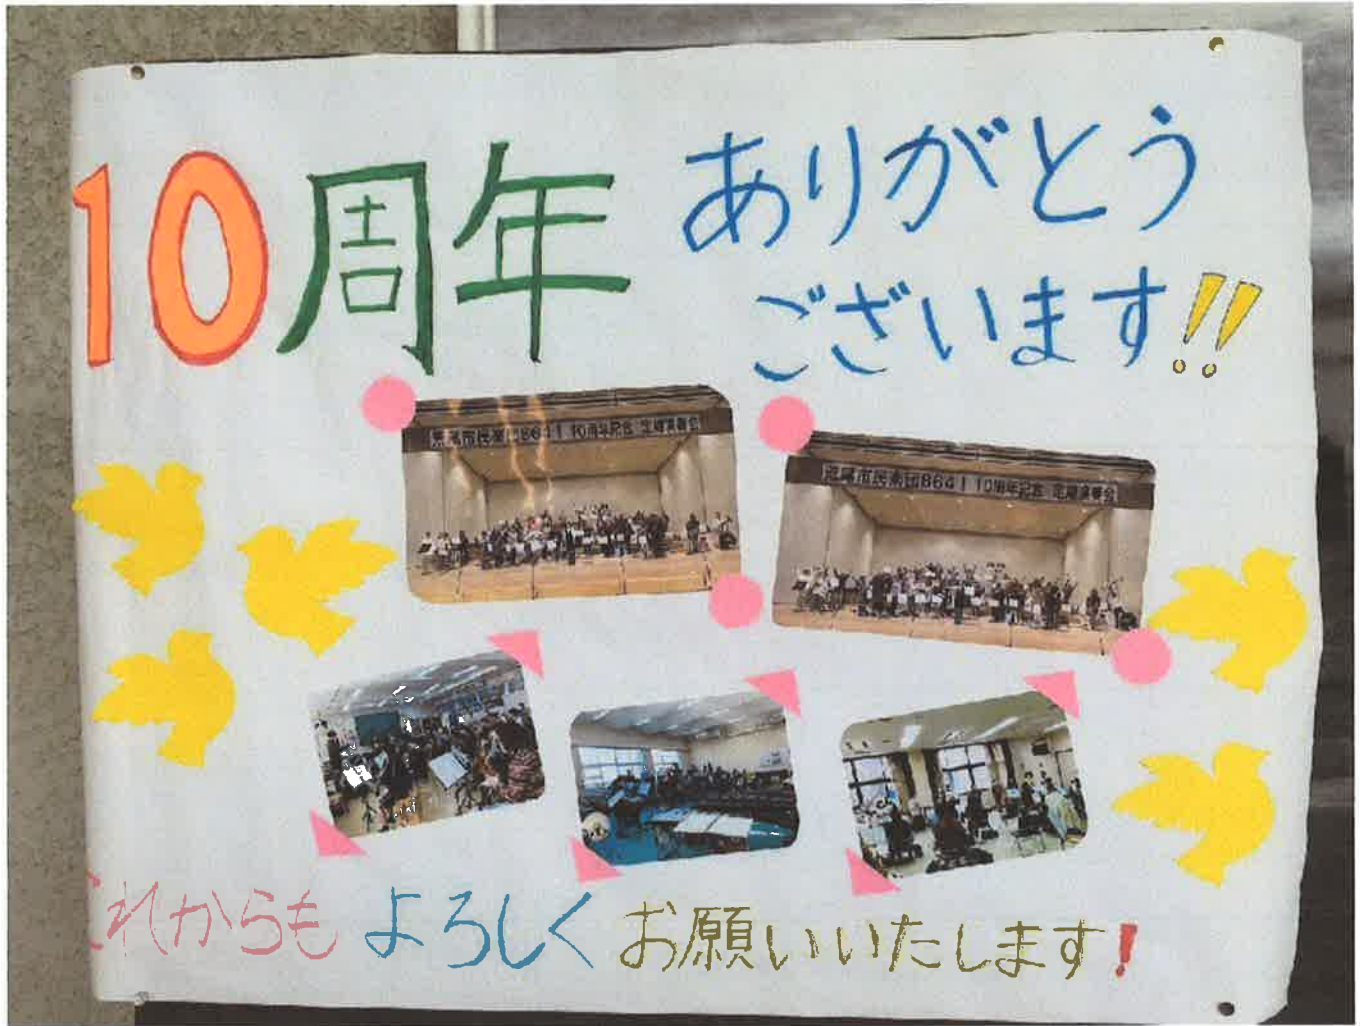 10周年 ありがとう
ございます!!
荒尾市民楽団8641 10周年記念 定期演奏会
荒尾市民楽団8641 10周年記念 定期演奏会
これからも よろしく お願いいたします!